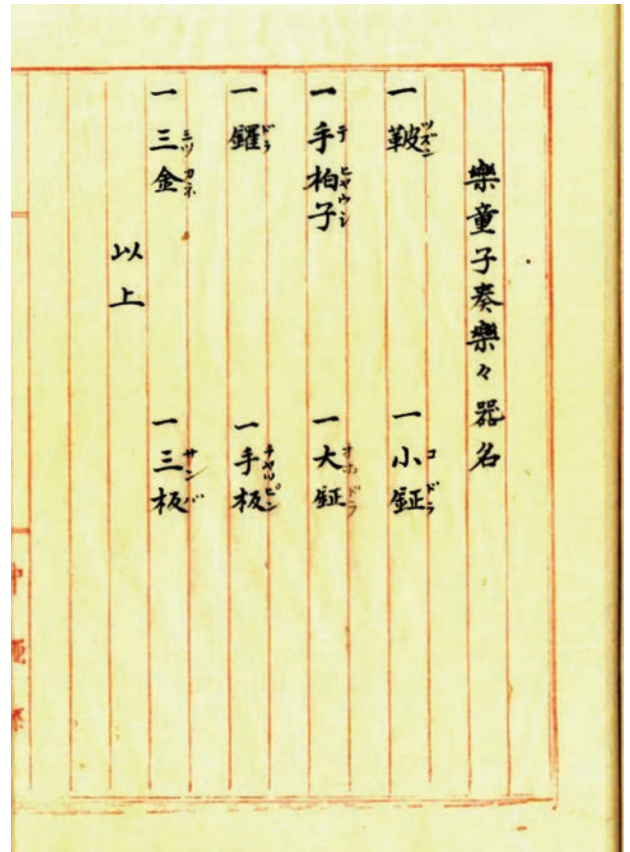 樂童子奏樂々器名
一 鞁 ツズン
一 小鉦 コドラ
一 手柏子 テヒヤウシ
一 大鉦 オホドラ
一 鑼 ドラ
一 手板 チヤツピン
一 三金 三ツカネ
一 三板 サンバ
以上
沖縄縣